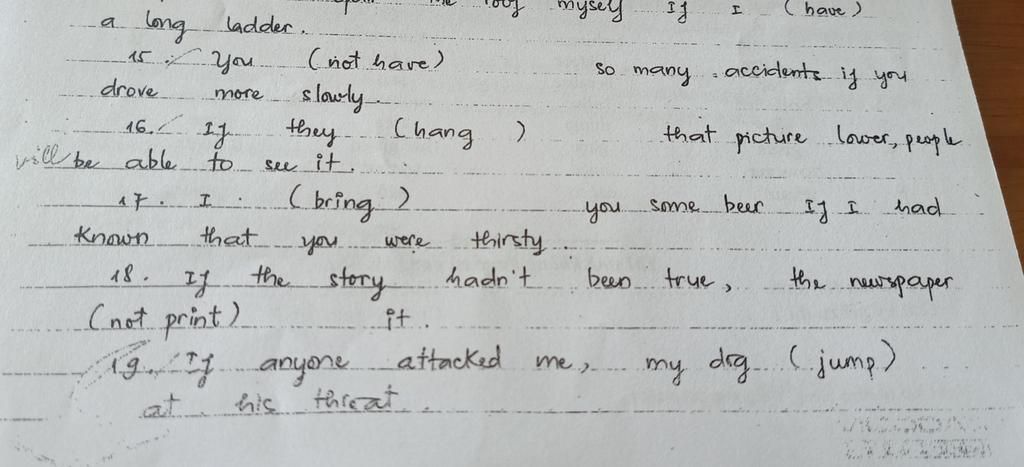 the roof myself If I (have)
a long ladder.
15. You (not have) so many accidents if you
drove more slowly.
16. If they (hang ) that picture lower, people
will be able to see it.
17. I (bring ) you some beer If I had
Known that you were thirsty.
18. If the story hadn't been true, the newspaper
(not print) it.
19. If anyone attacked me, my dog (jump)
at his threat.